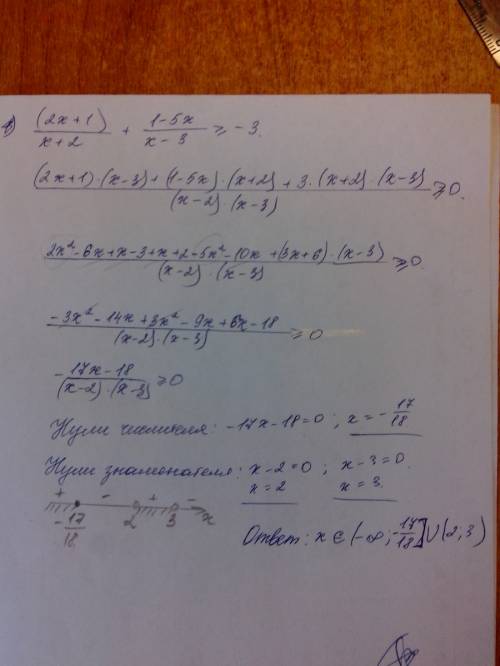 1) (2x+1)/(x+2) + (1-5x)/(x-3) ≥ -3.
((2x+1)·(x-3)+(1-5x)·(x+2)+3·(x+2)·(x-3))/((x-2)·(x-3)) ≥ 0.
(2x²-6x+x-3+x+2-5x²-10x+(3x+6)·(x-3))/((x-2)·(x-3)) ≥ 0.
(-3x²-14x+3x²-9x+6x-18)/((x-2)·(x-3)) ≥ 0
-(17x-18)/((x-2)·(x-3)) ≥ 0
Нули числителя: -17x-18=0 ; x=-17/18
Нули знаменателя: x-2=0 ; x-3=0.
x=2 x=3.
+ - + -
-17/18 2 3 x
Ответ: x∈(-∞;-17/18]∪(2;3)